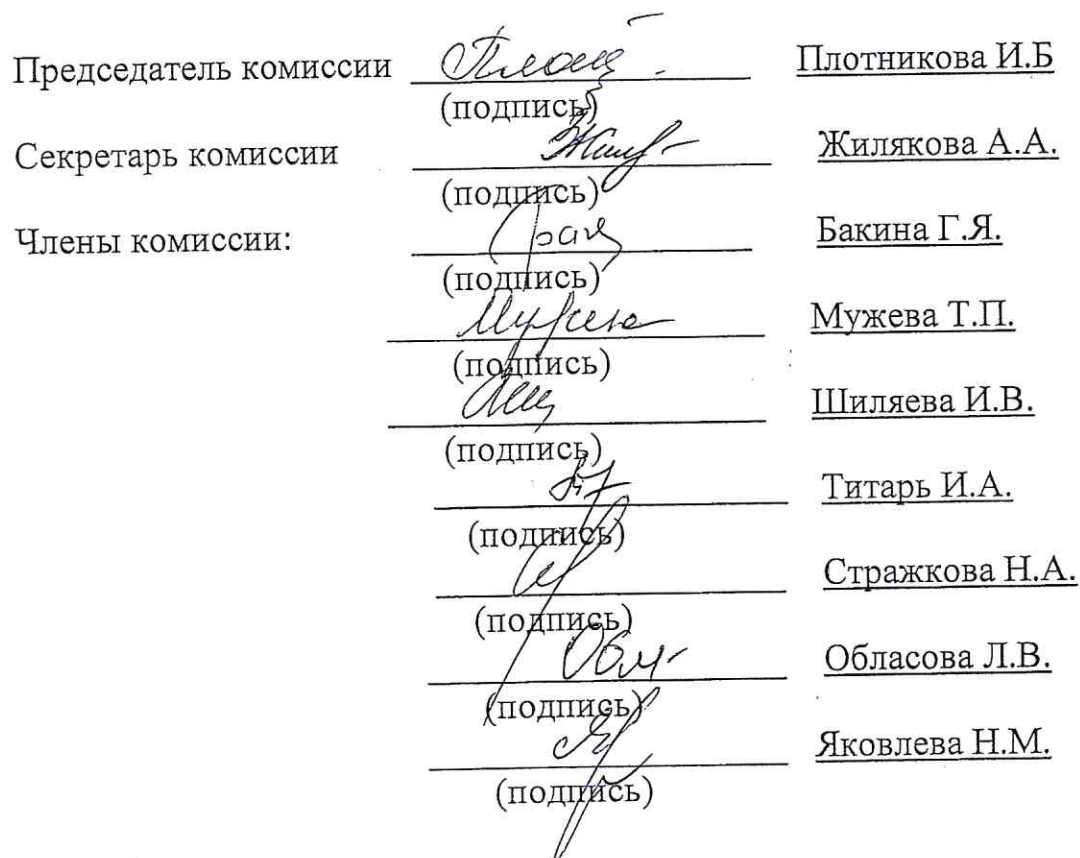 Председатель комиссии Плотникова И.Б
(подпись)
Секретарь комиссии Жилякова А.А.
(подпись)
Члены комиссии: Бакина Г.Я.
(подпись)
Мужева Т.П.
(подпись)
Шиляева И.В.
(подпись)
Титарь И.А.
(подпись)
Стражкова Н.А.
(подпись)
Обласова Л.В.
(подпись)
Яковлева Н.М.
(подпись)